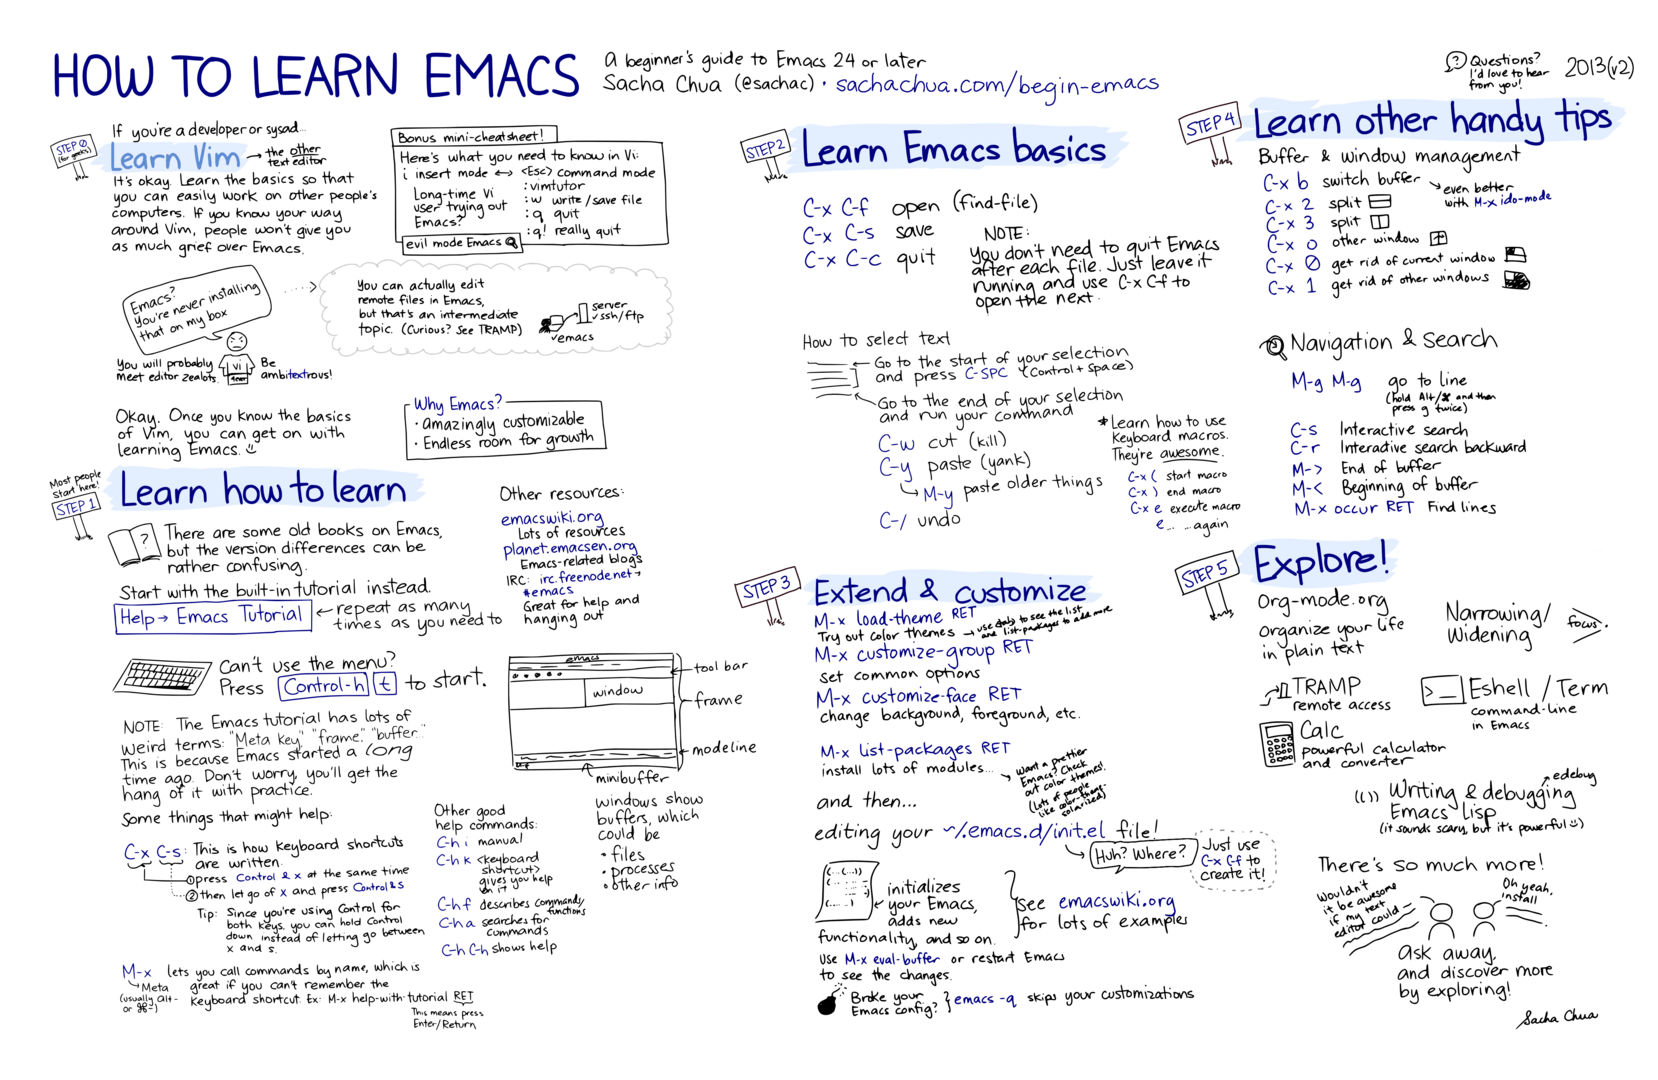 HOW TO LEARN EMACS
A beginner's guide to Emacs 24 or later
Sacha Chua (@sachac) · sachachua.com/begin-emacs
Questions?
I'd love to hear
from you!
2013(v2)
STEP 0
(for geeks)
If you're a developer or sysad...
Learn Vim → the other
text editor
It's okay. Learn the basics so that
you can easily work on other people's
computers. If you know your way
around Vim, people won't give you
as much grief over Emacs.
Bonus mini-cheatsheet!
Here's what you need to know in Vi:
i insert mode ↔ <Esc> command mode
:vimtutor
:w write/save file
:q quit
:q! really quit
Long-time Vi
user trying out
Emacs?
evil mode Emacs
Emacs?
You're never installing
that on my box
You can actually edit
remote files in Emacs,
but that's an intermediate
topic. (Curious? See TRAMP)
server
ssh/ftp
emacs
You will probably
meet editor zealots.
vi
Be
ambitextrous!
Okay. Once you know the basics
of Vim, you can get on with
learning Emacs.
Why Emacs?
· amazingly customizable
· Endless room for growth
Most people
start here!
STEP 1
Learn how to learn
?
There are some old books on Emacs,
but the version differences can be
rather confusing.
Start with the built-in tutorial instead.
Help → Emacs Tutorial ← repeat as many
times as you need to
Can't use the menu?
Press Control-h t to start.
NOTE: The Emacs tutorial has lots of
weird terms: "Meta key" "frame." "buffer..."
This is because Emacs started a long
time ago. Don't worry, you'll get the
hang of it with practice.
Some things that might help:
C-x C-s: This is how keyboard shortcuts
are written.
① press Control & x at the same time
② then let go of x and press Control & s
Tip: Since you're using Control for
both keys, you can hold Control
down instead of letting go between
x and s.
M-x lets you call commands by name, which is
Meta great if you can't remember the
(usually alt-
or ⌘-)
keyboard shortcut. Ex: M-x help-with-tutorial RET
This means press
Enter/Return
Other resources:
emacswiki.org
Lots of resources
planet.emacsen.org
Emacs-related blogs
IRC: irc.freenode.net →
#emacs
Great for help and
hanging out
emacs
window
tool bar
frame
modeline
minibuffer
windows show
buffers, which
could be
· files
· processes
· other info
Other good
help commands:
C-h i manual
C-h k <keyboard
shortcut>
gives you help
on it
C-h f describes commands/
functions
C-h a searches for
commands
C-h C-h shows help
STEP 2
Learn Emacs basics
C-x C-f open (find-file)
C-x C-s save
C-x C-c quit
NOTE:
You don't need to quit Emacs
after each file. Just leave it
running and use C-x C-f to
open the next.
How to select text
Go to the start of your selection
and press C-SPC (Control + Space)
Go to the end of your selection
and run your command
C-w cut (kill)
C-y paste (yank)
M-y paste older things
C-/ undo
* Learn how to use
Keyboard macros.
They're awesome.
C-x ( start macro
C-x ) end macro
C-x e execute macro
e... ...again
STEP 3
Extend & customize
M-x load-theme RET
Try out color themes → use tab to see the list,
and list-packages to add more
M-x customize-group RET
set common options
M-x customize-face RET
change background, foreground, etc.
M-x list-packages RET
install lots of modules...
Want a prettier
Emacs? Check
out color themes!
(Lots of people
like color-theme-
solarized)
and then...
editing your ~/.emacs.d/init.el file!
Huh? Where?
Just use
C-x C-f to
create it!
initializes
your Emacs,
adds new
functionality, and so on.
see emacswiki.org
for lots of examples
Use M-x eval-buffer or restart Emacs
to see the changes.
Broke your
Emacs config?
emacs -q skips your customizations
STEP 4
Learn other handy tips
Buffer & window management
C-x b switch buffer
even better
with M-x ido-mode
C-x 2 split
C-x 3 split
C-x o other window
C-x 0 get rid of current window
C-x 1 get rid of other windows
Navigation & Search
M-g M-g go to line
(hold Alt/⌘ and then
press g twice)
C-s Interactive search
C-r Interactive search backward
M-> End of buffer
M-< Beginning of buffer
M-x occur RET Find lines
STEP 5
Explore!
Org-mode.org
Organize your life
in plain text
Narrowing/
Widening
focus.
TRAMP
remote access
Eshell / Term
command-line
in Emacs
Calc
powerful calculator
and converter
edebug
Writing & debugging
Emacs Lisp
(it sounds scary, but it's powerful)
There's so much more!
Wouldn't
it be awesome
if my text
editor could...
Oh yeah,
install
Ask away,
and discover more
by exploring!
Sacha Chua